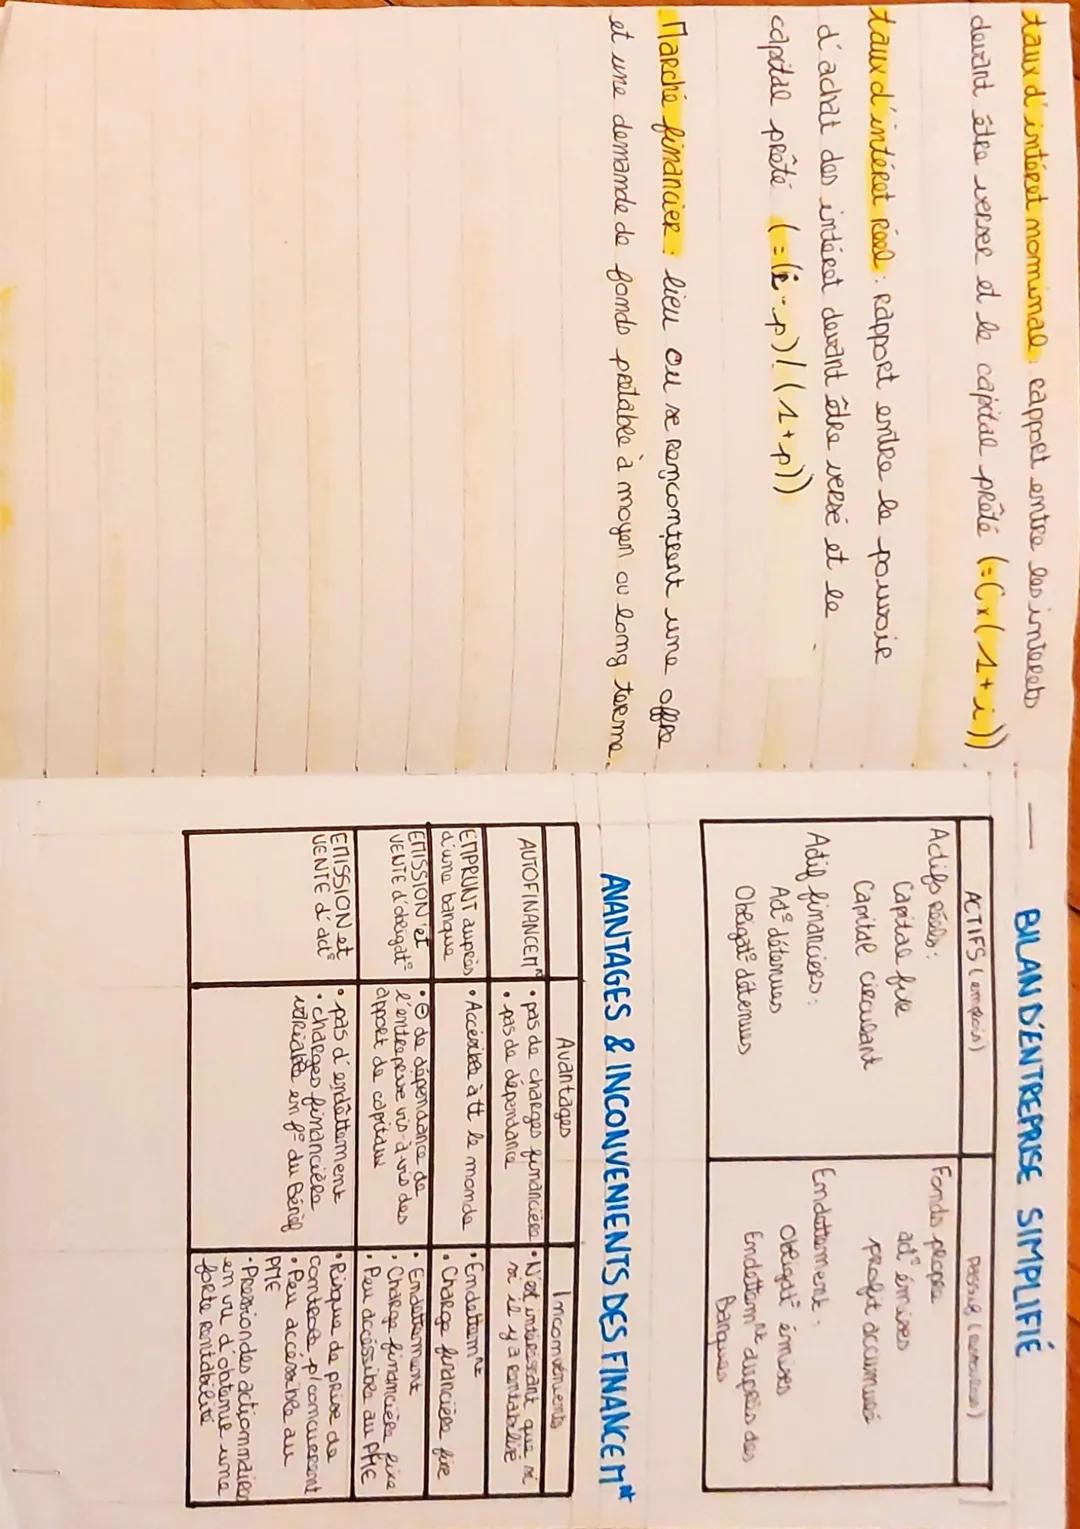 taux d'intéret nominal : rapport entre les interets
devant être verser et le capital prêté (=C x (1+i))
taux d'intéret réel : Rapport entre le pouvoir
d'achat des intéret devant être versé et le
capital prêté (=(i-p)/(1+p))
Marché financier : lieu ou se rencontrent une offre
et une demande de fonds prêtable à moyen ou long terme.
BILAN D'ENTREPRISE SIMPLIFIÉ
ACTIFS (emplois)
Actifs réels :
Capital fixe
Capital circulant
Actif financiers :
Act° détenues
Obligat° détenues
Passif (ressources)
Fonds propre
act° émises
profit accumulé
Endettement :
Obligat° émises
Endettemnt auprès des
Banques
AVANTAGES & INCONVENIENTS DES FINANCEMnt
Avantages
Inconvénients
AUTOFINANCEMnt
• pas de charges financière
• pas de dépendance
• N'est intéressant que si
si il y a rentabilité
EMPRUNT auprès
d'une banque
• Accessible à tt le monde
• Endettemnt
• Charge financière fixe
EMISSION et
VENTE d'obligat°
• ⊖ de dépendance de
l'entreprise vis-à-vis des
apport de capitaux
• Endettement
• Charge financière fixe
• Peu accéssible au PME
EMISSION et
VENTE d'act°
• pas d'endêttement
• charges financière
variable en f° du Bénéf
• Risque de prise de
controle p/ concurrent
• Peu accéssible au
PME
• Pression des actionnaires
en vu d'obtenir une
forte rentabilité